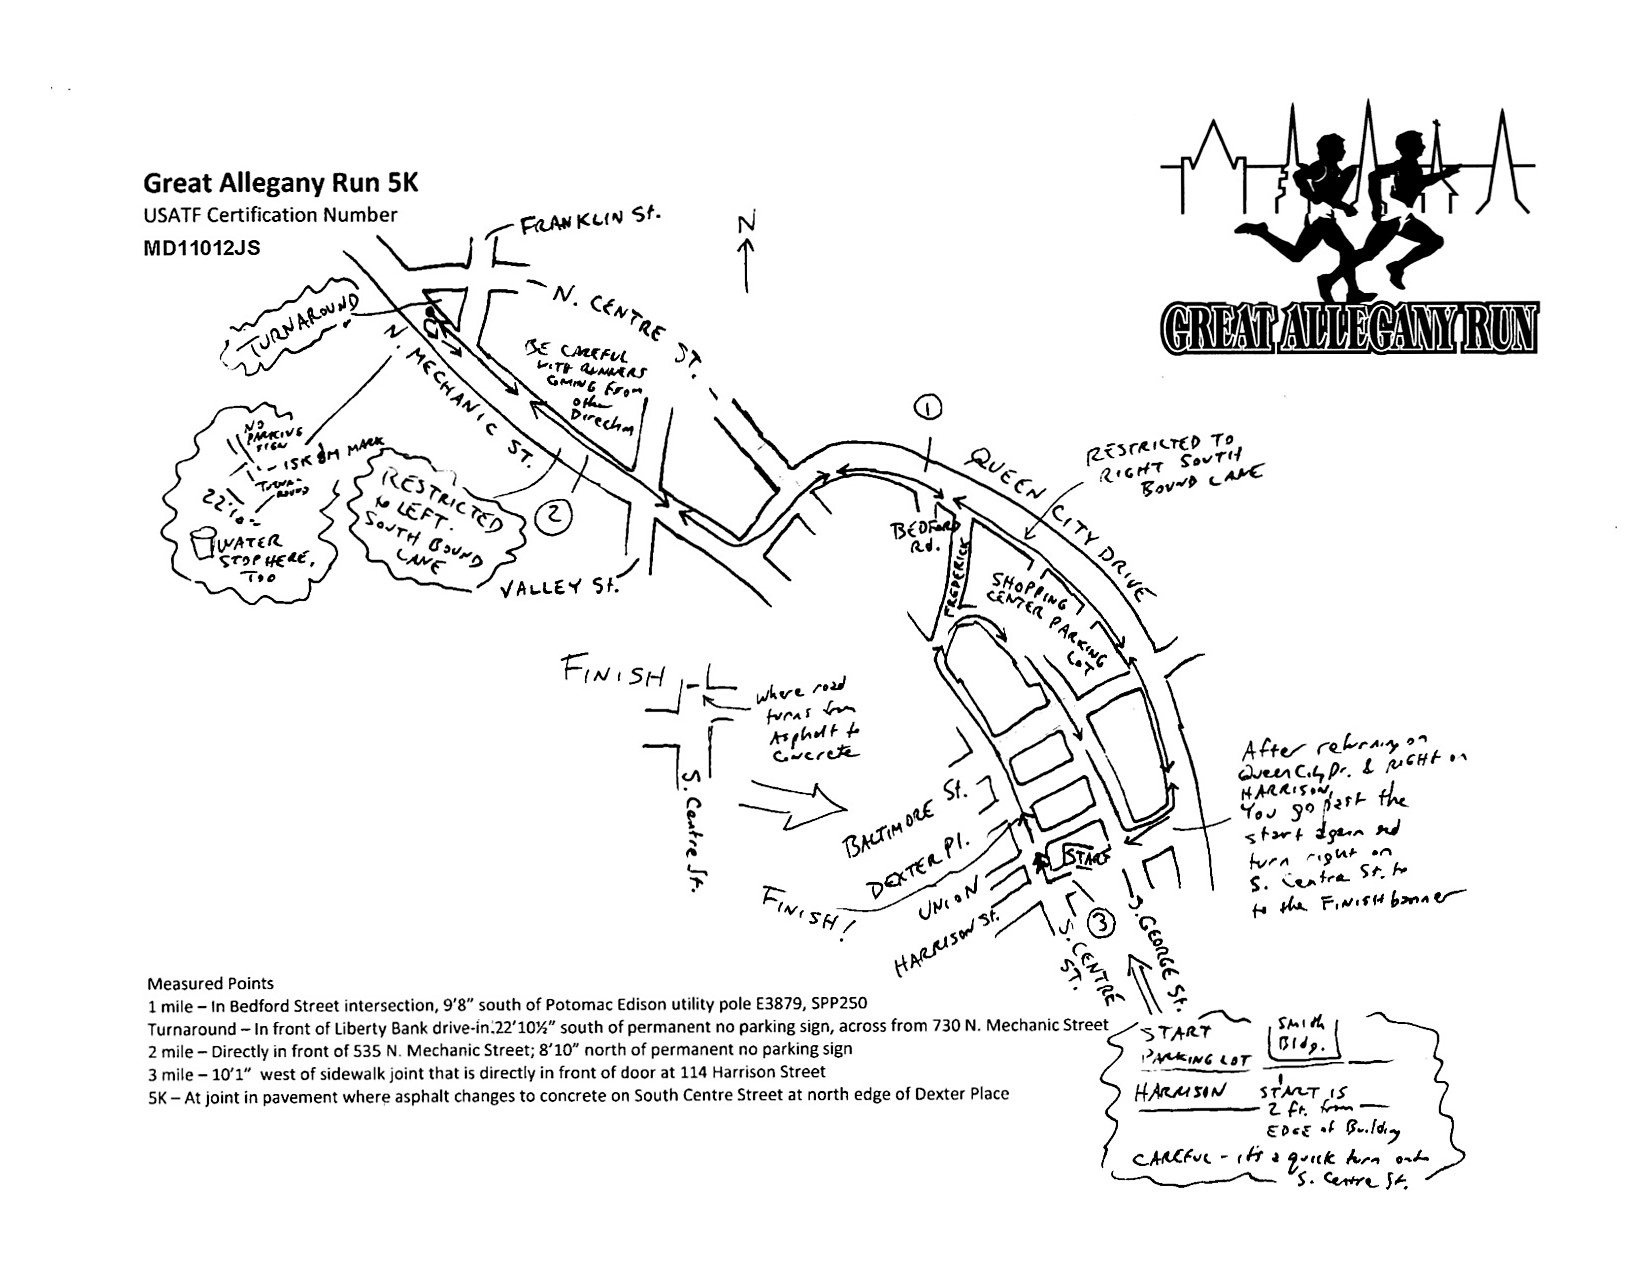 Great Allegany Run 5K
USATF Certification Number
MD11012JS
GREAT ALLEGANY RUN
FRANKLIN St.
N
N. CENTRE ST.
TURNAROUND
N. MECHANIC ST.
BE CAREFUL
WITH RUNNERS
COMING From
other
Direction
1
QUEEN CITY DRIVE
RESTRICTED TO
RIGHT SOUTH
BOUND LANE
NO
PARKING
SIGN
MARK
TURNA-
ROUND
WATER
STOP HERE,
TOO
RESTRICTED
to LEFT.
SOUTH BOUND
LANE
2
VALLEY St.
BEDFORD
Rd.
FREDERICK
SHOPPING
CENTER PARKING
LOT
FINISH
where road
turns from
Asphalt to
Concrete
S. Centre St.
After returning on
Queen City Dr. & RIGHT on
HARRISON,
You go past the
start again and
turn right on
S. Centre St. to
to the FINISH banner
BALTIMORE St.
DEXTER Pl.
UNION
HARRISON St.
FINISH!
START
3
S. CENTRE
ST.
S. GEORGE St.
Measured Points
1 mile – In Bedford Street intersection, 9'8" south of Potomac Edison utility pole E3879, SPP250
Turnaround – In front of Liberty Bank drive-in.22'10½" south of permanent no parking sign, across from 730 N. Mechanic Street
2 mile – Directly in front of 535 N. Mechanic Street; 8'10" north of permanent no parking sign
3 mile – 10'1" west of sidewalk joint that is directly in front of door at 114 Harrison Street
5K – At joint in pavement where asphalt changes to concrete on South Centre Street at north edge of Dexter Place
START
PARKING LOT
Smith
Bldg.
HARRISON
START IS
2 ft. from
EDGE of Building
CAREFUL - it's a quick turn onto
S. Centre St.